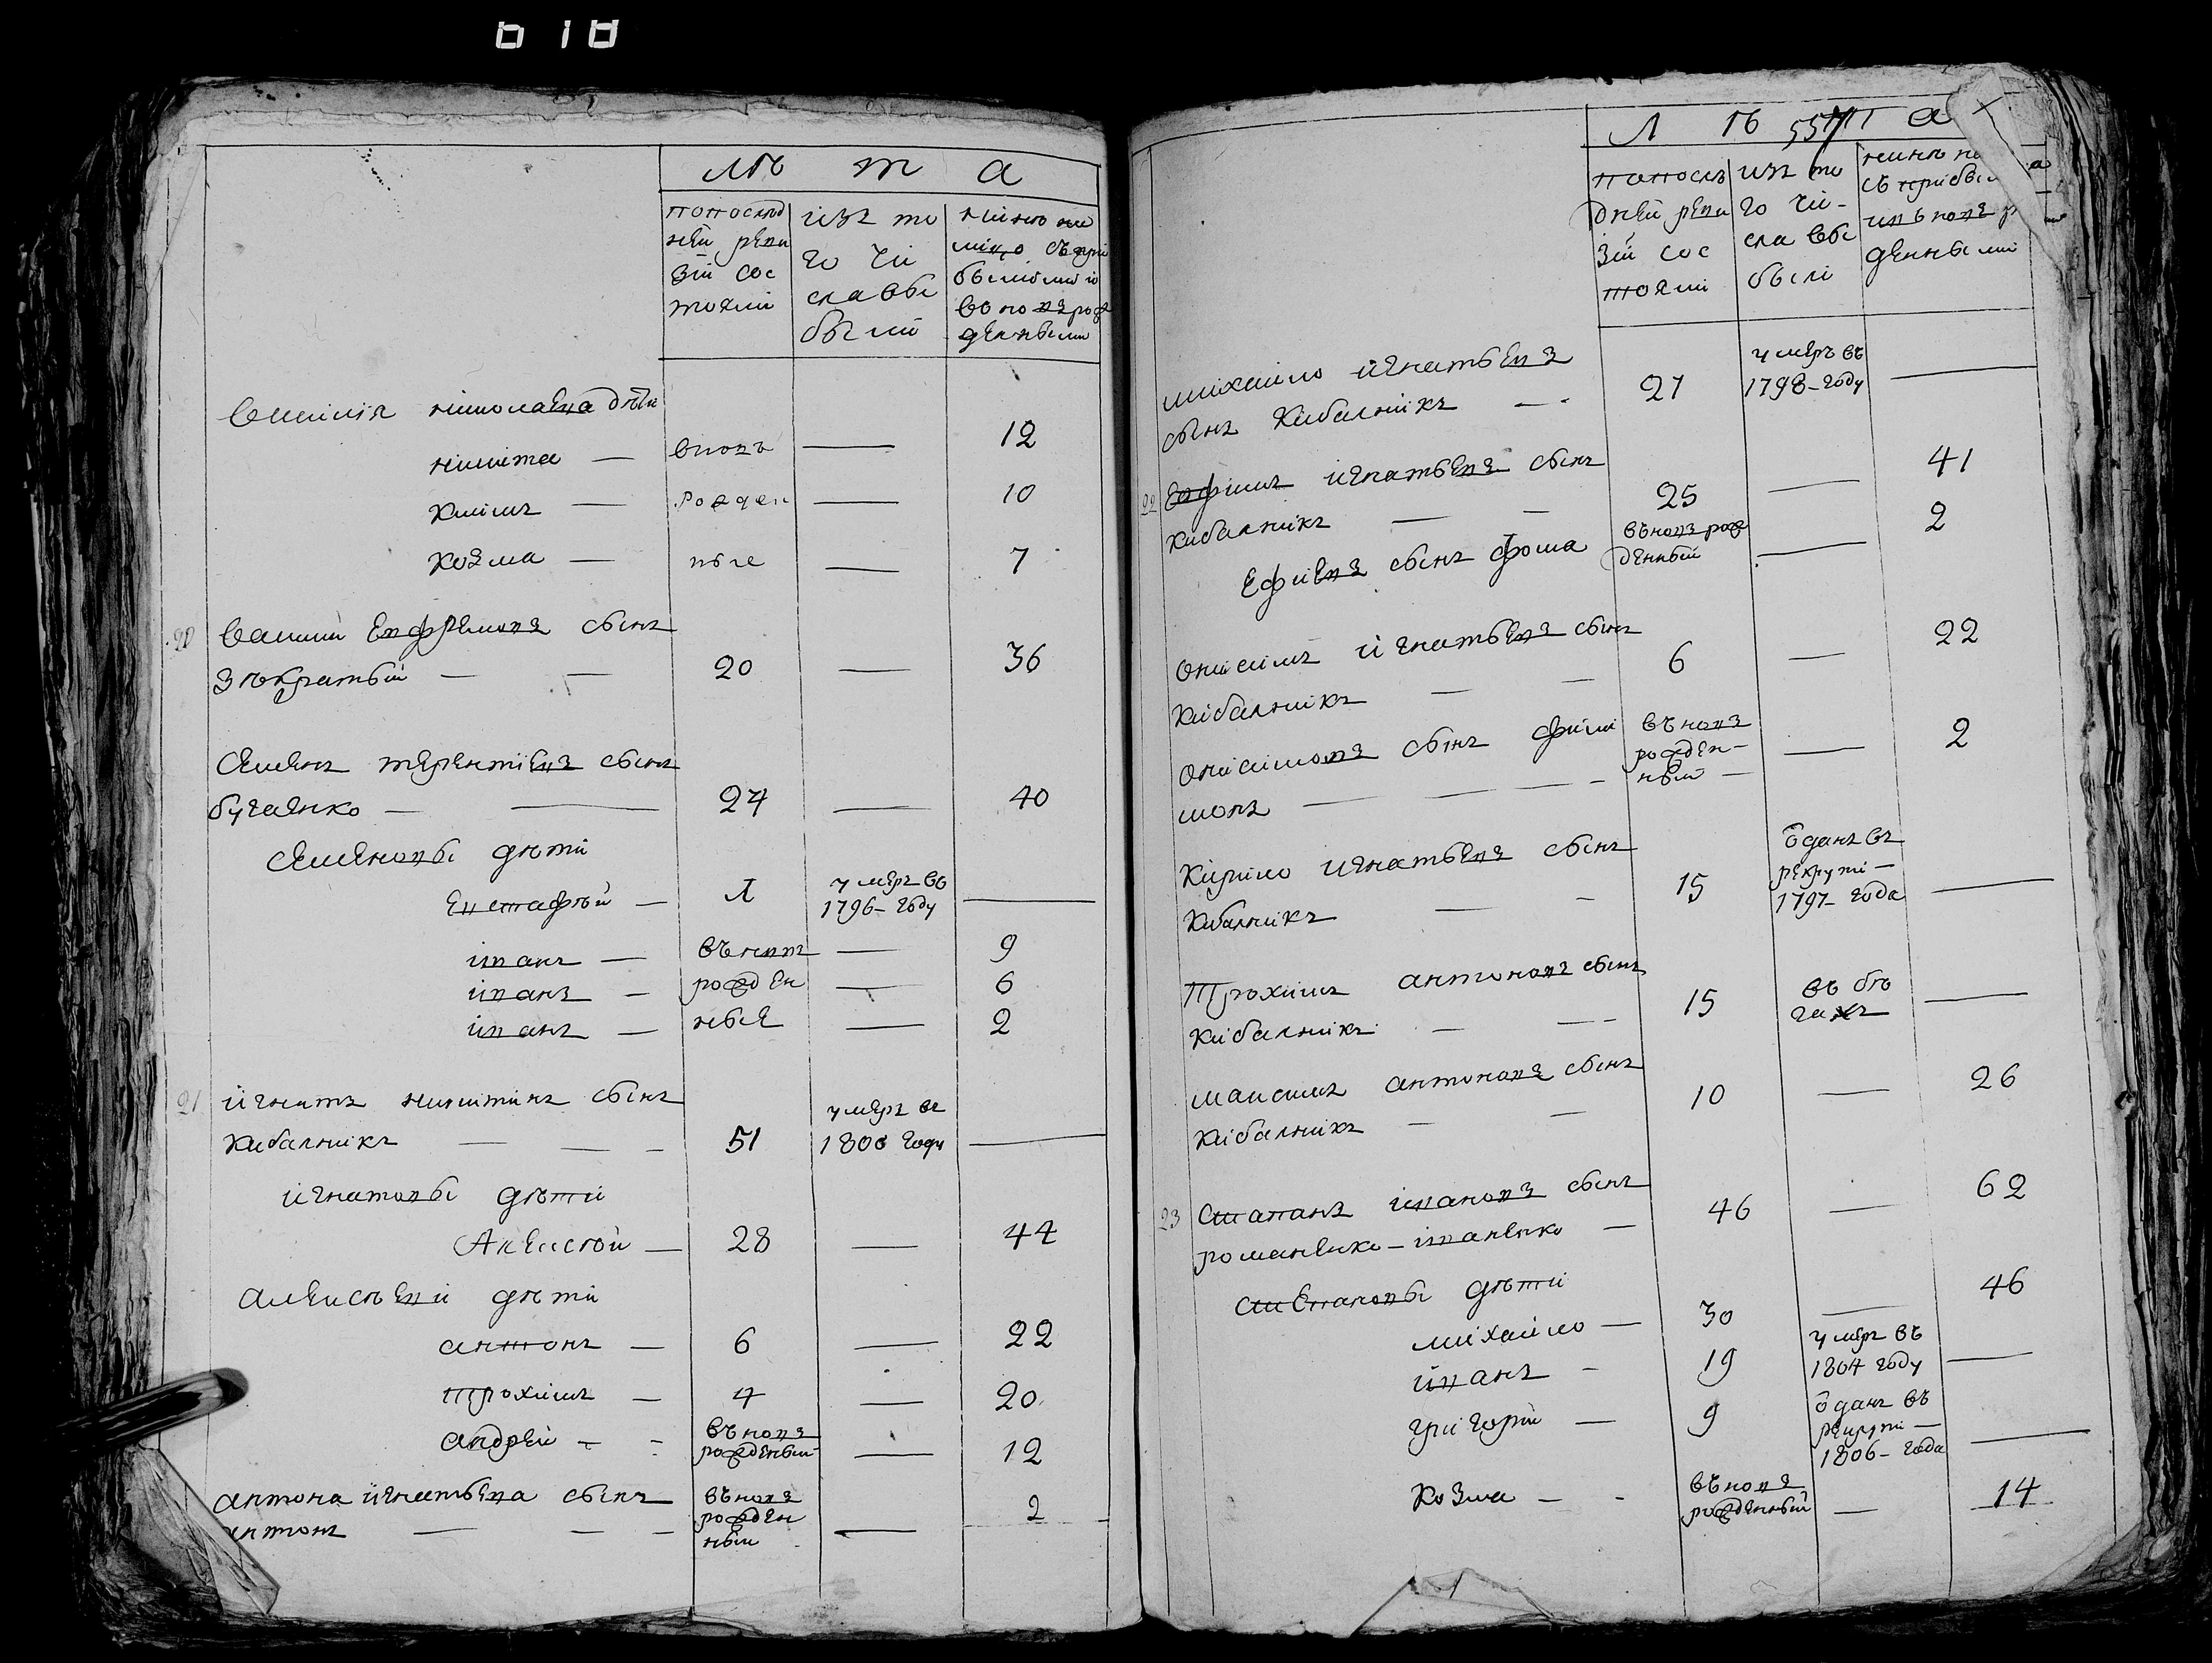 618
лѣ т а
попослѣд
ней реви
зіи сос
тояли
изъ то
го чи
сла вы
были
нынѣ на
лицо съ при
былыми и
вь новъ рож
денными
василія николаева дѣти
никита — вновь — 12
климъ — рожден — 10
козма — ные — 7
20 василій евфремовъ сынъ
20 — 36
семенъ терентіевъ сынъ
бугаенко — 24 — 40
семеновы дѣти
евстафѣй — Л умеръ въ 1796 - году —
иванъ — въ новъ — 9
иванъ — рожден — 6
иванъ — ные — 2
21 игнатъ никитинъ сынъ
кибалникъ — 51 умеръ въ 1806 году —
игнатовы дѣти
Алексѣй — 28 — 44
алексѣеви дѣти
антонъ — 6 — 22
трохимъ — 4 — 20
андрей — въ новъ рожденый — 12
антона игнатьева сынъ
антонъ — въ новъ рожден ный — 2
Л ѣ 55 т а
попослѣ
дней реви
зіи сос
тояли
изъ то
го чи-
сла вы
были
нынѣ на
съ прибыл
ив новъ р
денными
михайло игнатьевъ
сынъ кибалникъ — 27 умеръ въ 1798 - году —
22 евфимъ игнатьевъ сынъ
кибалникъ — 25 — 41
Ефиевъ сынъ фома въ новъ рож денный — 2
онисимъ игнатьевъ сынъ
кибалникъ — 6 — 22
онисимовъ сынъ фили
монъ — въ новъ рожден- ный — 2
кирило игнатьевъ сынъ
кибалникъ — 15 оданъ въ рекруты — 1797 - года —
трохимъ антоновъ сынъ
кибалникъ — 15 въ бѣ гахъ —
максимъ антоновъ сынъ
кибалникъ — 10 — 26
23 стапанъ ивановъ сынъ
романенко - иваненко — 46 — 62
степановы дѣти
михайло — 30 — 46
иванъ — 19 умеръ въ 1804 году —
григорій — 9 оданъ въ рекруты — 1806 - года —
козма — въ новъ рожденный — 14